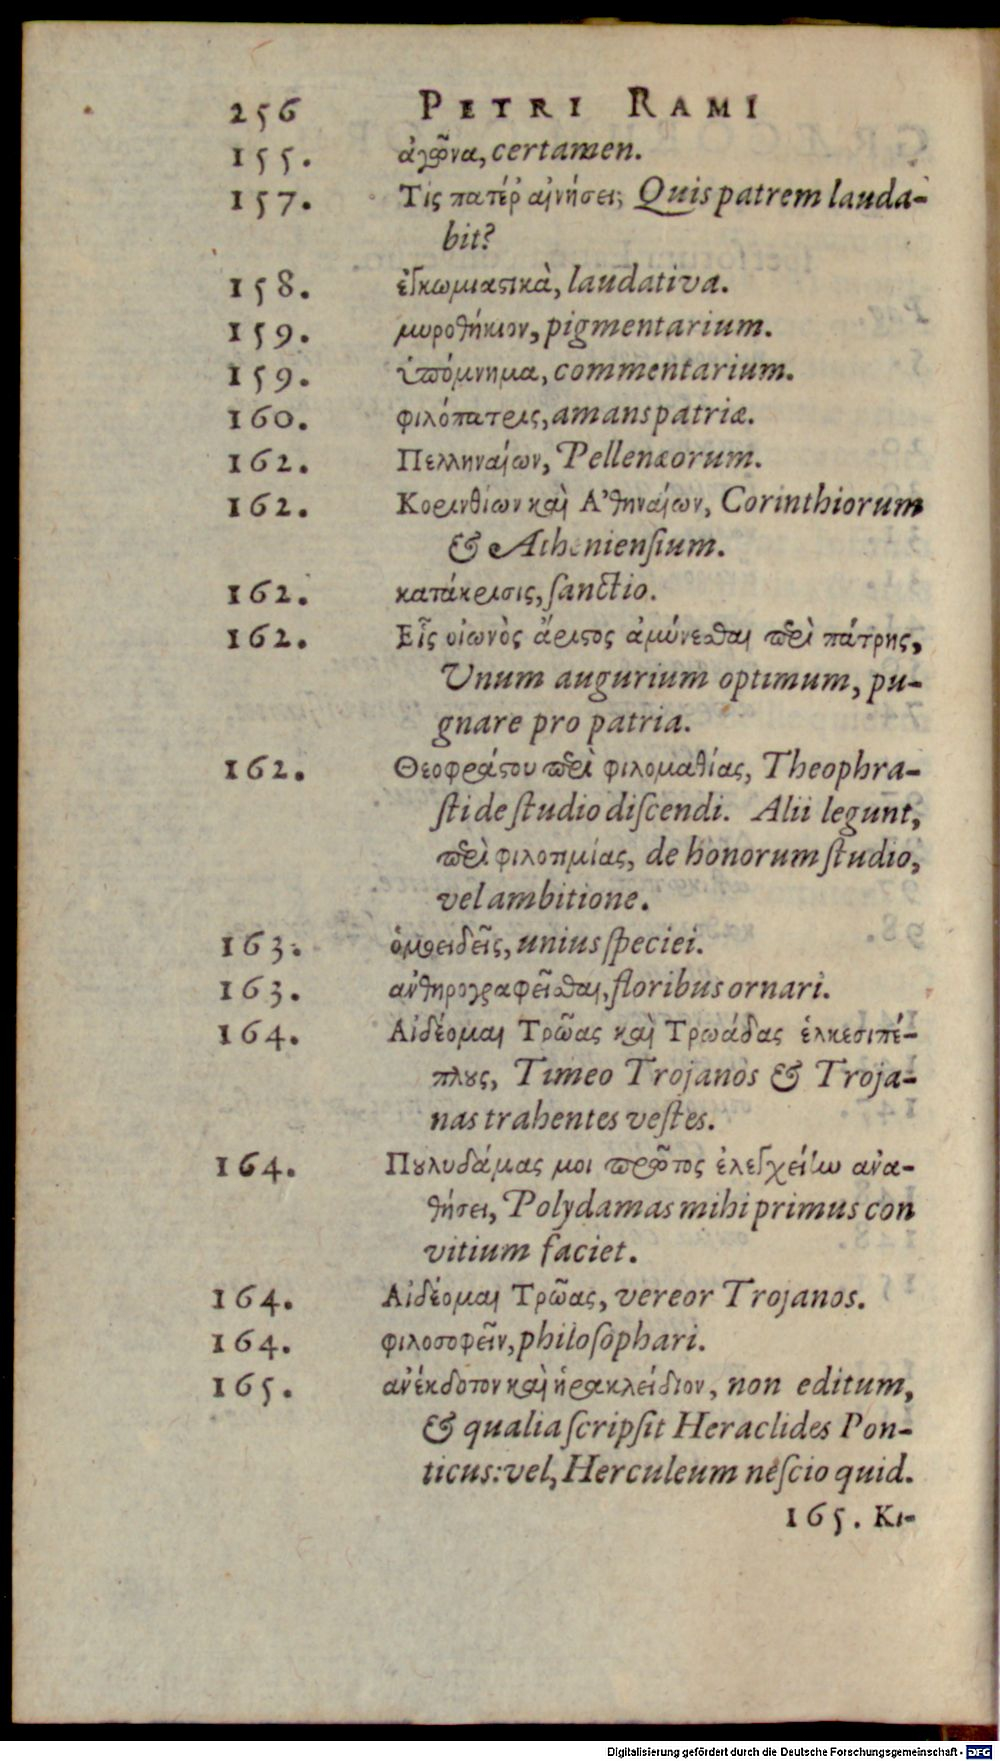 256 PETRI RAMI
155. ἀγῶνα, certamen.
157. Τίς πατέρ᾽ αἰνήσει; Quis patrem lauda-
bit?
158. ἐγκωμιαστικὰ, laudativa.
159. μυροθήκιον, pigmentarium.
159. ὑπόμνημα, commentarium.
160. φιλόπατρις, amans patriæ.
162. Πελληναίων, Pellenæorum.
162. Κορινθίων καὶ Ἀθηναίων, Corinthiorum
& Atheniensium.
162. κατάκρισις, ſanctio.
162. Εἷς οἰωνὸς ἄριστος ἀμύνεσθαι περὶ πάτρης,
Unum augurium optimum, pu-
gnare pro patria.
162. Θεοφράστου περὶ φιλομαθίας, Theophra-
ſti de ſtudio diſcendi. Alii legunt,
περὶ φιλοτιμίας, de honorum ſtudio,
vel ambitione.
163. ὁμοειδεῖς, unius ſpeciei.
163. ἀνθηρογραφεῖσθαι, floribus ornari.
164. Αἰδέομαι Τρῶας καὶ Τρωάδας ἑλκεσιπέ-
πλους, Timeo Trojanos & Troja-
nas trahentes veſtes.
164. Πουλυδάμας μοι πρῶτος ἐλεγχείην ἀνα-
θήσει, Polydamas mihi primus con
vitium faciet.
164. Αἰδέομαι Τρῶας, vereor Trojanos.
164. φιλοσοφεῖν, philoſophari.
165. ἀνέκδοτον καὶ ἡρακλείδιον, non editum,
& qualia ſcripſit Heraclides Pon-
ticus: vel, Herculeum neſcio quid.
165. Κι-
Digitalisierung gefördert durch die Deutsche Forschungsgemeinschaft - DFG